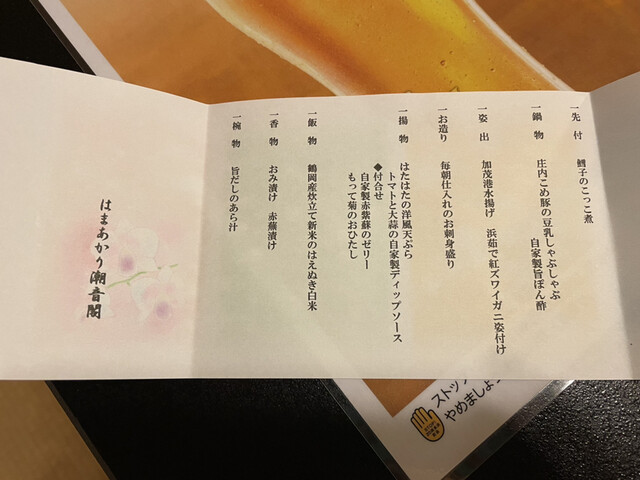 一先 付 鱈子のこっこ煮
一鍋 物 庄内こめ豚の豆乳しゃぶしゃぶ
自家製旨ぽん酢
一姿 出 加茂港水揚げ 浜茹で紅ズワイガニ姿付け
一お造り 毎朝仕入れのお刺身盛り
一揚 物 はたはたの洋風天ぷら
トマトと大蒜の自家製ディップソース
◆付合せ
自家製赤紫蘇のゼリー
もって菊のおひたし
一飯 物 鶴岡産炊立て新米のはえぬき白米
一香 物 おみ漬け 赤蕪漬け
一椀 物 旨だしのあら汁
はまあかり潮音閣
ストッ
やめましょ